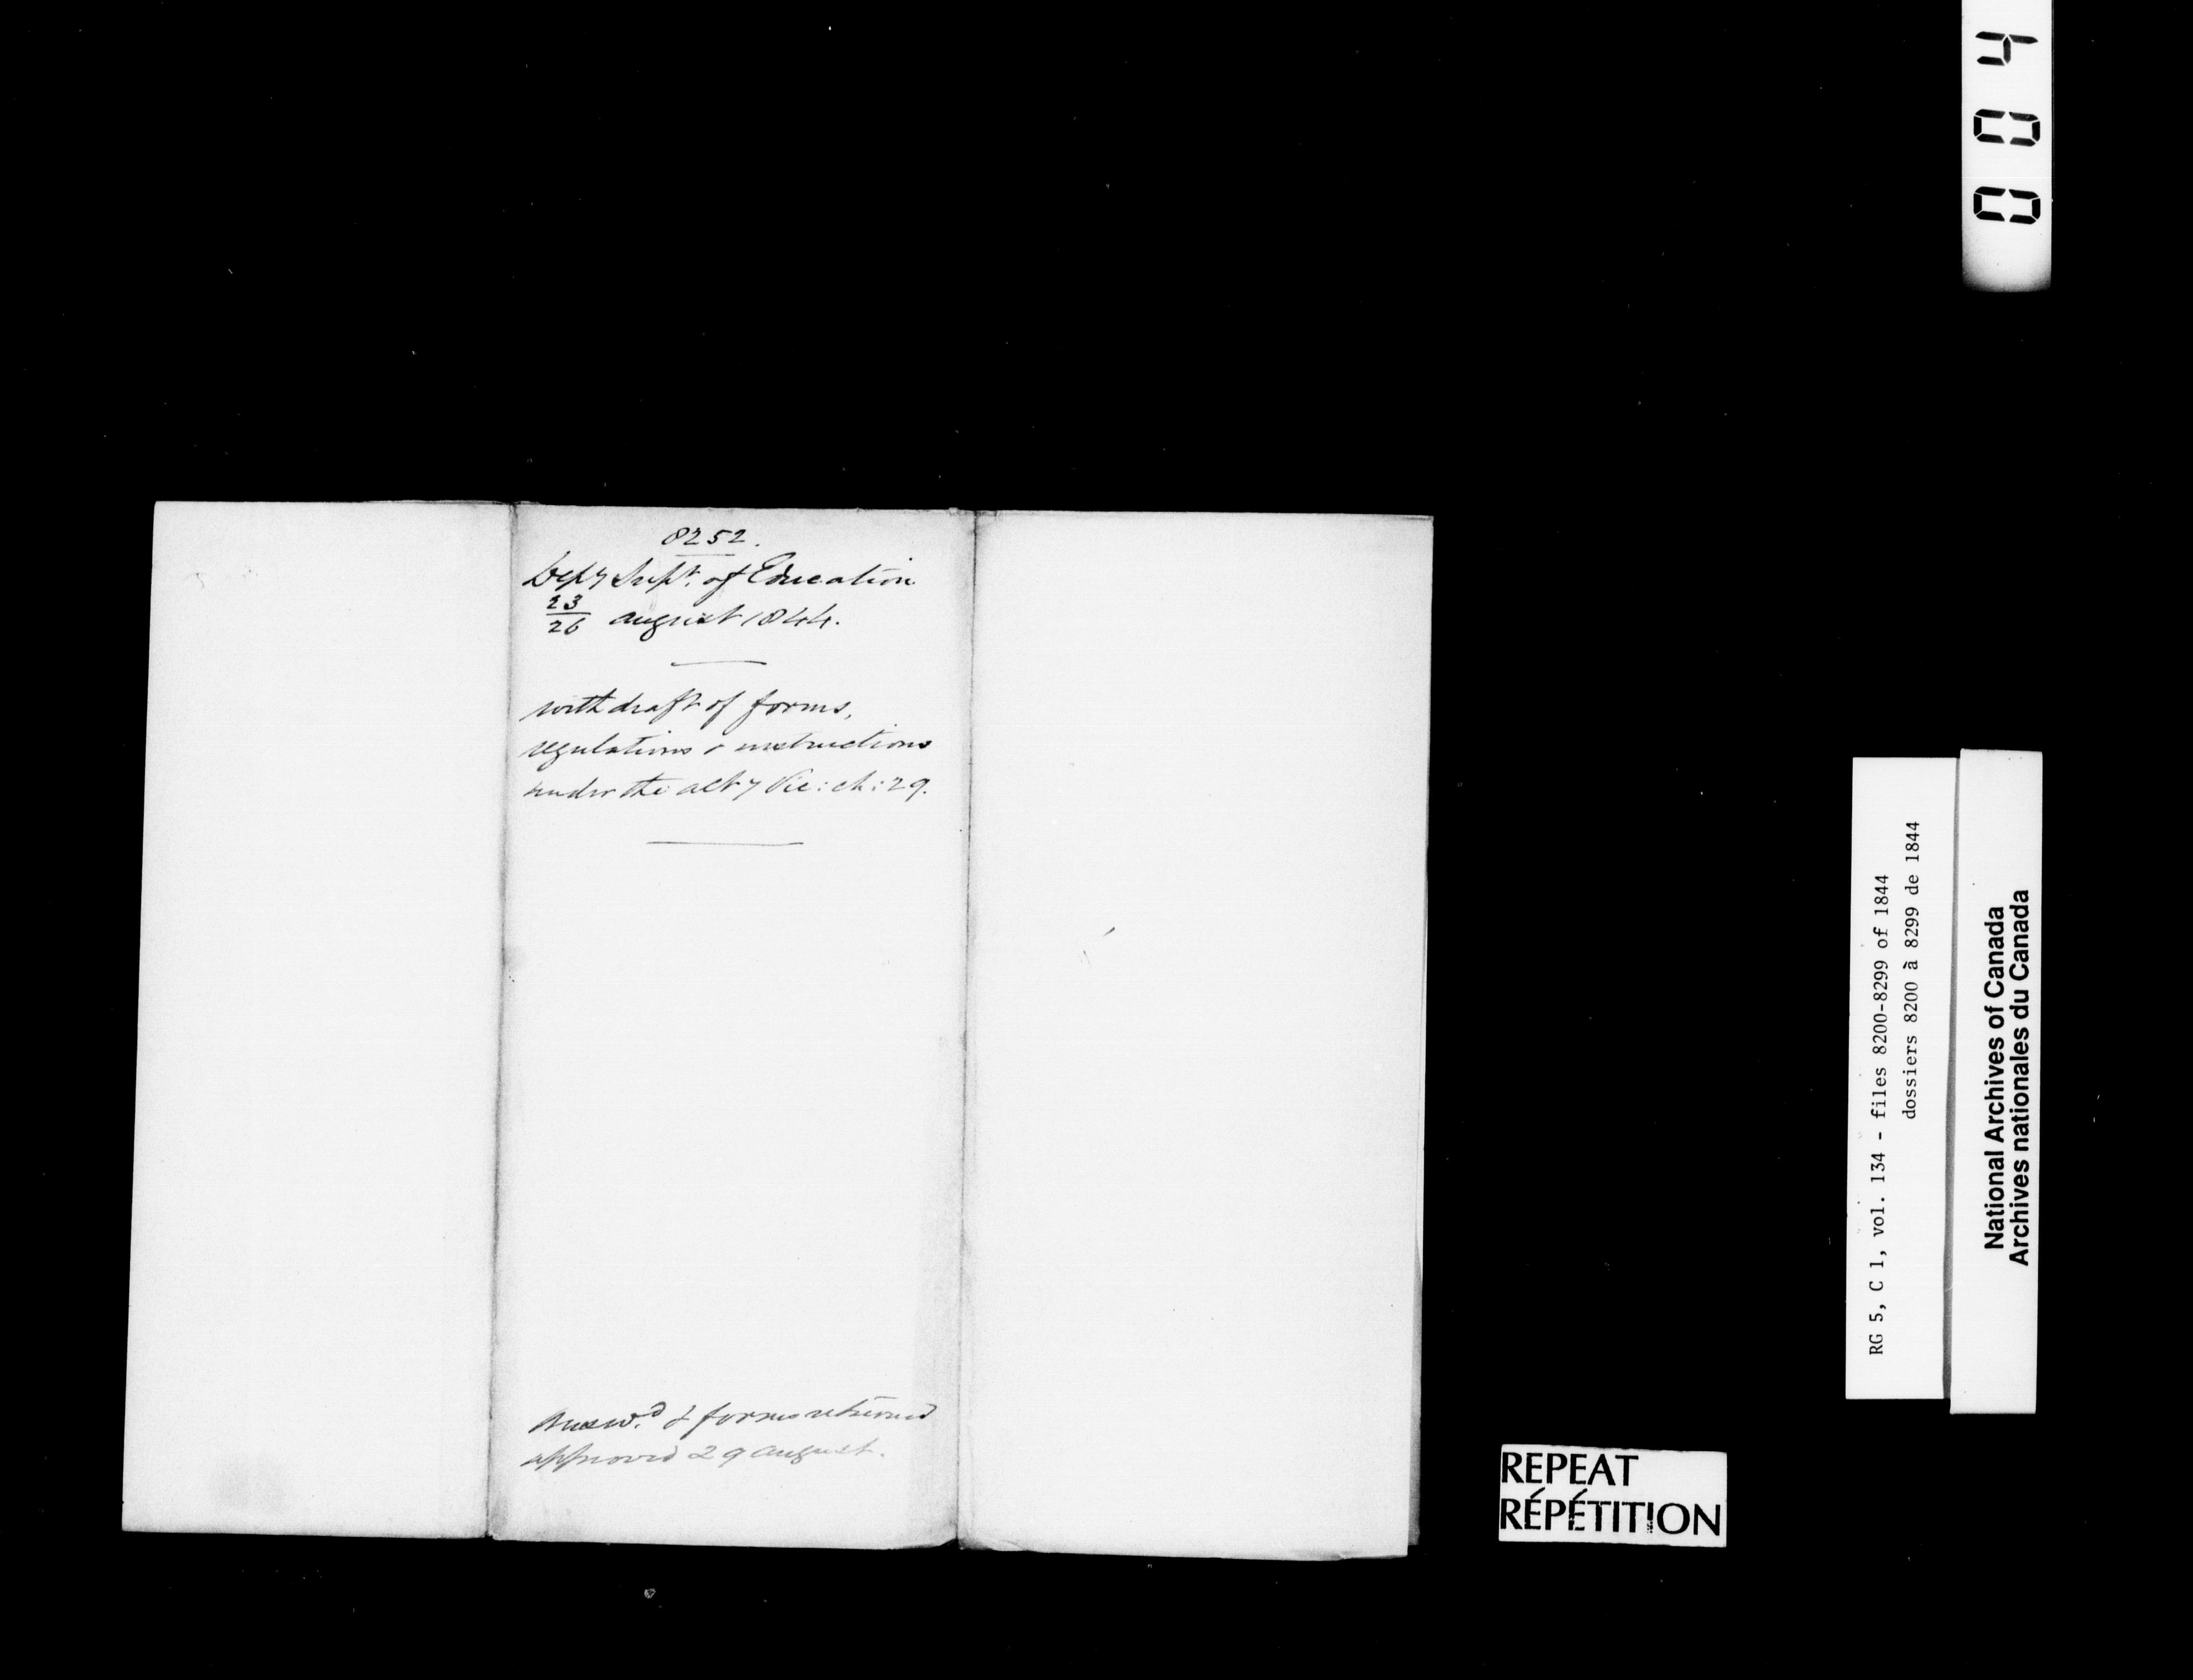 8252.
Depy Supt. of Education
23
26 august 1844.
with draft of forms,
regulations & instructions
under the act 7 Vic: ch: 29.
Answd. & forms returned
approved 29 august.
REPEAT
RÉPÉTITION
RG 5, C 1, vol. 134 - files 8200-8299 of 1844
dossiers 8200 à 8299 de 1844
National Archives of Canada
Archives nationales du Canada
004